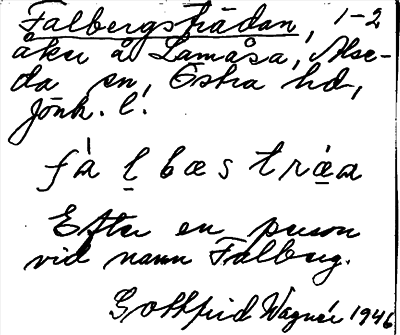 Falbergsträdan, 1-2
åker å Lamåsa, Alse-
da sn, Östra hd,
Jönk. l.
fàl̠bæsträ̠a
Efter en person
vid namn Falberg.
Gottfrid Wagnér 1946